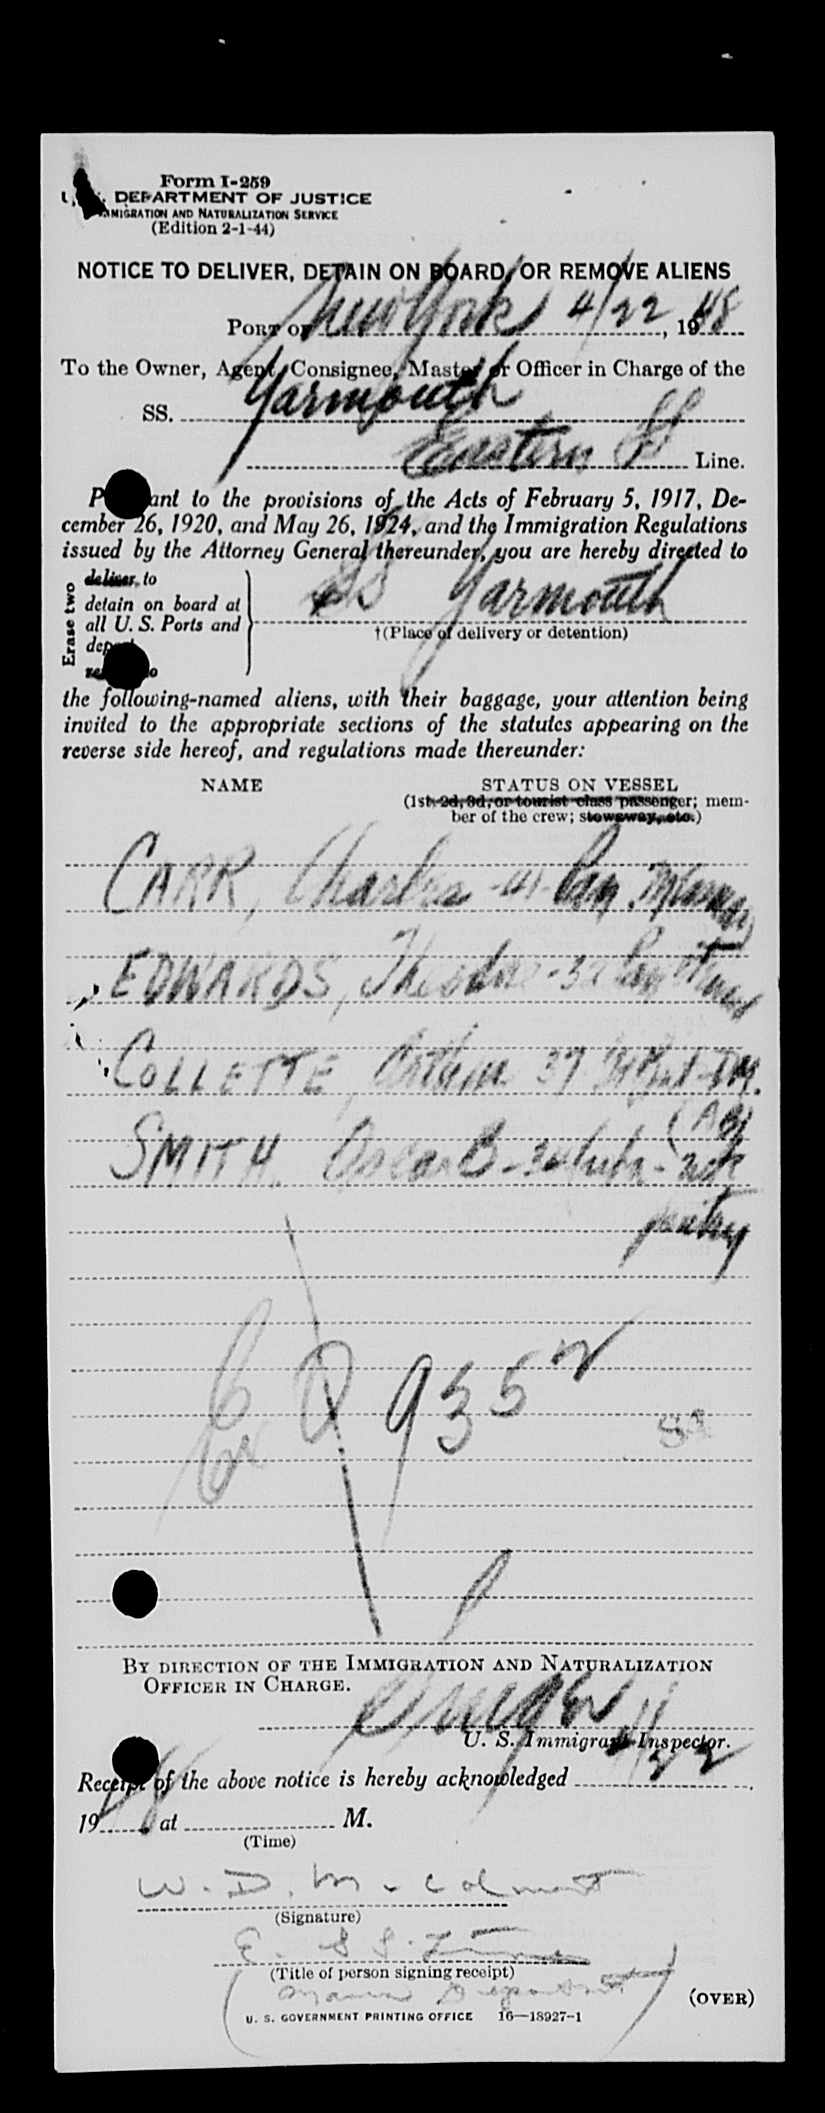 Form I-259
U. S. DEPARTMENT OF JUSTICE
IMMIGRATION AND NATURALIZATION SERVICE
(Edition 2-1-44)
NOTICE TO DELIVER, DETAIN ON BOARD, OR REMOVE ALIENS
PORT OF New York 4/22, 1948
To the Owner, Agent, Consignee, Master or Officer in Charge of the
SS. Yarmouth
Eastern SS Line.
Pursuant to the provisions of the Acts of February 5, 1917, De-
cember 26, 1920, and May 26, 1924, and the Immigration Regulations
issued by the Attorney General thereunder, you are hereby directed to
Erase two
deliver to
detain on board at
all U. S. Ports and
SS Yarmouth
†(Place of delivery or detention)
the following-named aliens, with their baggage, your attention being
invited to the appropriate sections of the statutes appearing on the
reverse side hereof, and regulations made thereunder:
NAME STATUS ON VESSEL
(1st, 2d, 3d, or tourist class passenger; mem-
ber of the crew; stowaway, etc.)
CARR, Charles - 41 - Pan.
EDWARDS, Theodore - 32 Pan
COLLETTE, Arthur 37
(AB)
SMITH. Oscar B - 34
pantry
Q 9352
By direction of the Immigration and Naturalization
Officer in Charge.
U. S. Immigrant Inspector.
4/22
Receipt of the above notice is hereby acknowledged
1948 at M.
(Time)
W. D.
(Signature)
E. SS.
(Title of person signing receipt)
(OVER)
U. S. GOVERNMENT PRINTING OFFICE 16—18927-1